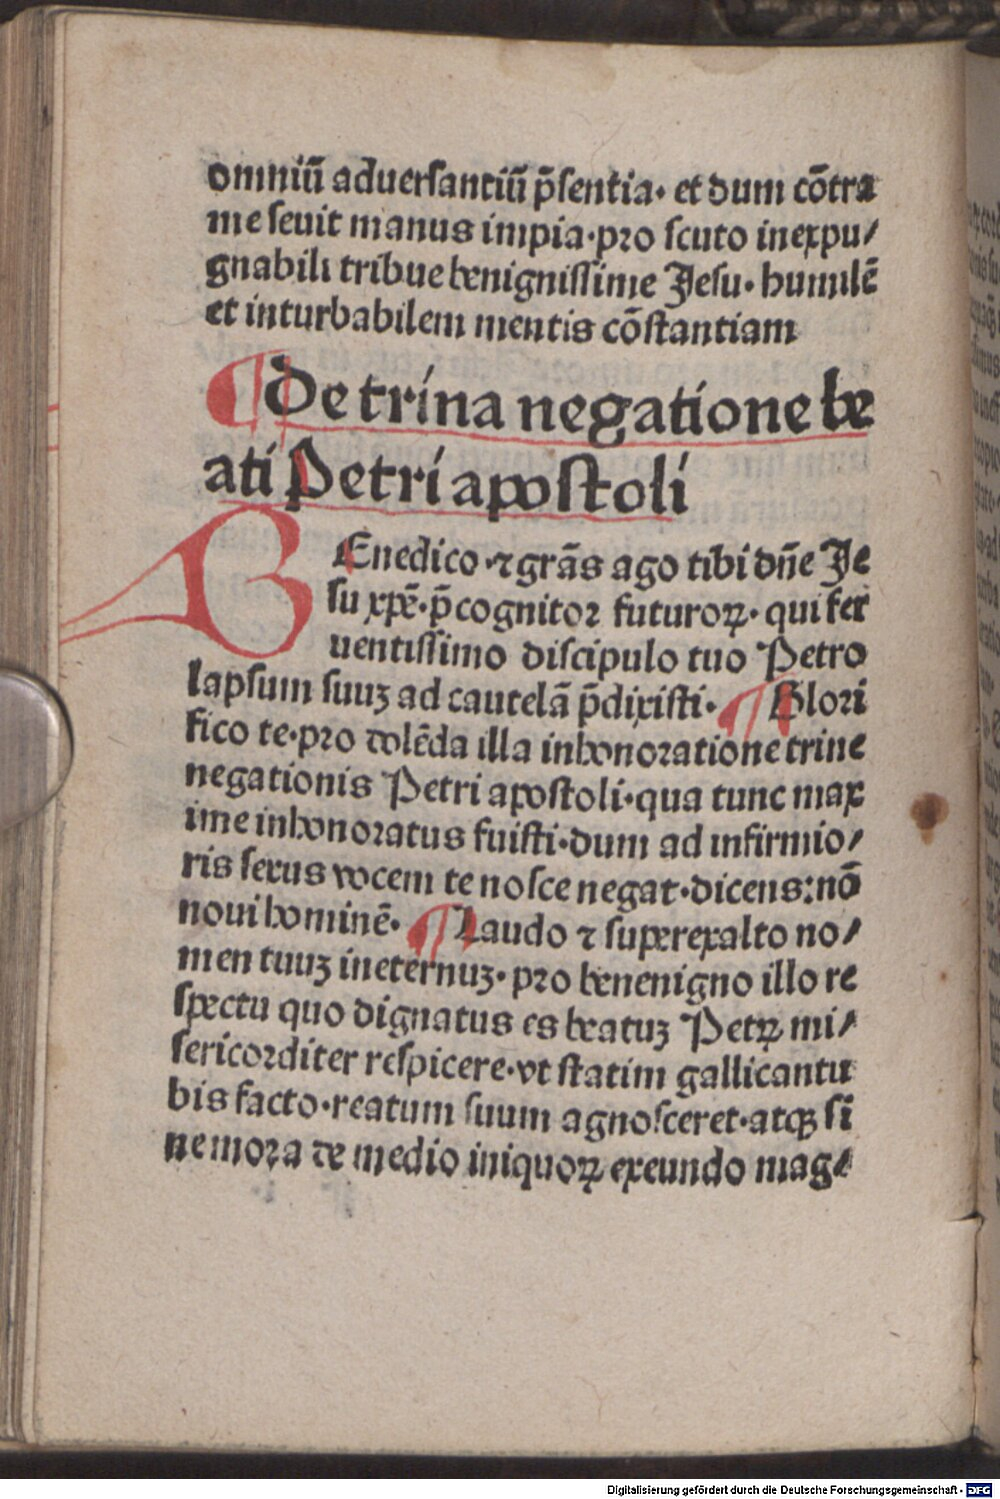 omniū aduersantiū p̄sentia· et dum cōtra
me seuit manus impia·pro scuto inexpu/
gnabili tribue benignissime Jesu· humilē
et inturbabilem mentis cōstantiam
¶De trina negatione be
ati Petri apostoli
BEnedico·⁊ grās ago tibi dn̄e Je
su xp̄e·p̄cognitor futuroꝝ· qui fer
uentissimo discipulo tuo Petro
lapsum suuꝫ ad cautelā p̄dixisti· ¶Glori
fico te·pro dolēda illa inhonoratione trine
negationis Petri apostoli·qua tunc max
ime inhonoratus fuisti·dum ad infirmio/
ris sexus vocem te nosce negat·dicens:nō
noui hominē· ¶Laudo ⁊ superexalto no/
men tuuꝫ in eternuꝫ· pro benenigno illo re
spectu quo dignatus es beatuꝫ Petꝝ mi/
sericorditer respicere·vt statim gallicantu
bis facto·reatum suum agnosceret·atqꝫ si
ne mora de medio iniquoꝝ exeundo mag/
Digitalisierung gefördert durch die Deutsche Forschungsgemeinschaft - DFG